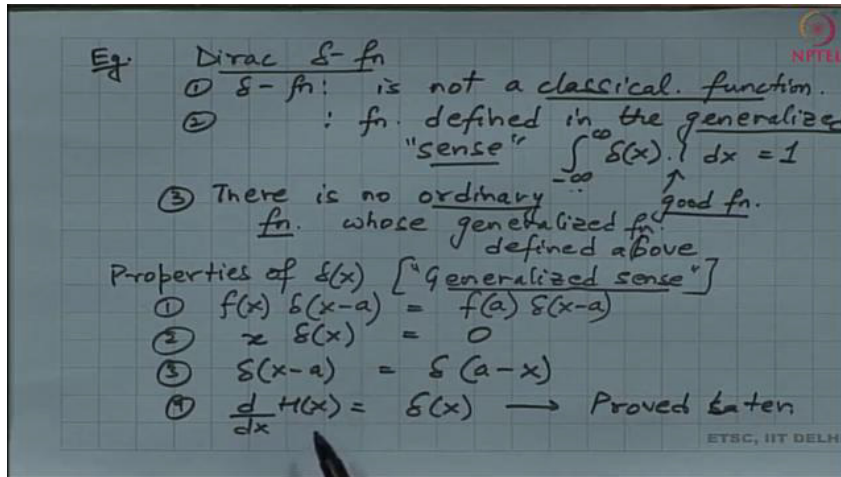 NPTEL
Eg. Dirac δ-fn
① δ-fn: is not a classical. function.
② : fn. defined in the generalized
"sense" ∫_{-∞}^{∞} δ(x).1 dx = 1
↑
③ There is no ordinary good fn.
fn. whose generalized fn.
defined above
Properties of δ(x) ["Generalized sense"]
① f(x) δ(x-a) = f(a) δ(x-a)
② x δ(x) = 0
③ δ(x-a) = δ(a-x)
④ d/dx H(x) = δ(x) → Proved
ETSC, IIT DELH